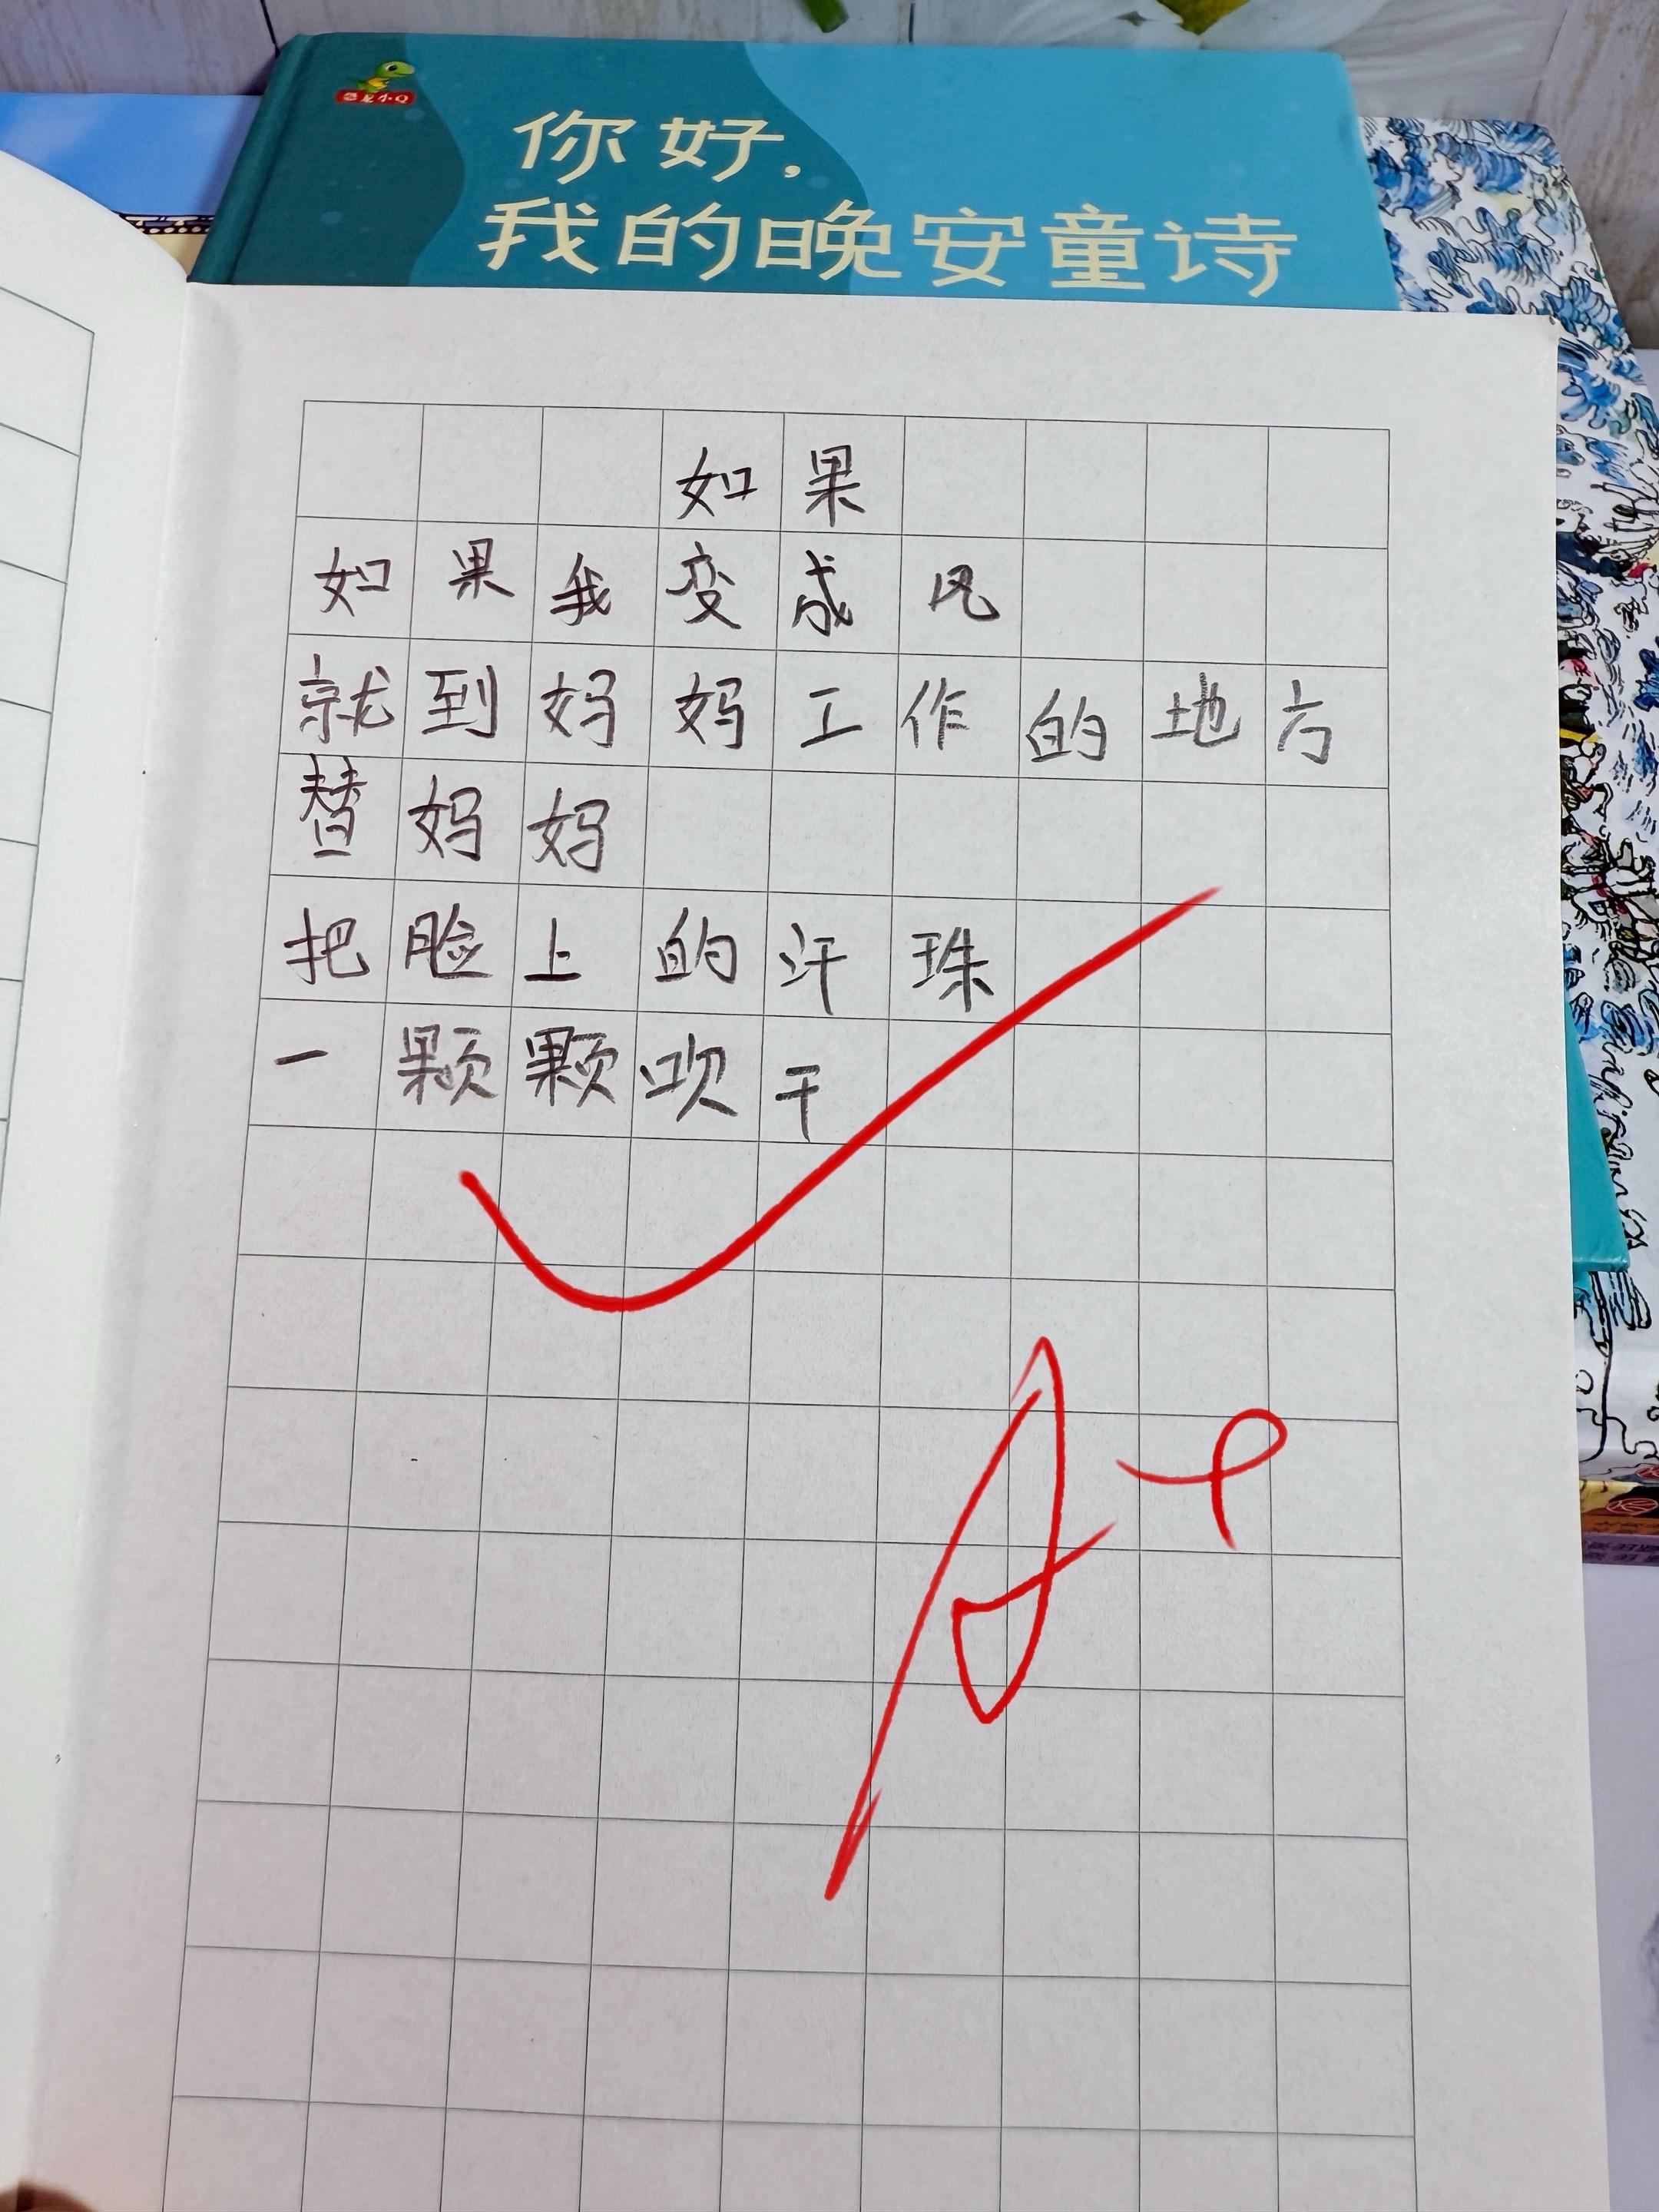 恐龙小Q
你好,
我的晚安童诗
如果
如果我变成风
就到妈妈工作的地方
替妈妈
把脸上的汗珠
一颗颗吹干
A+